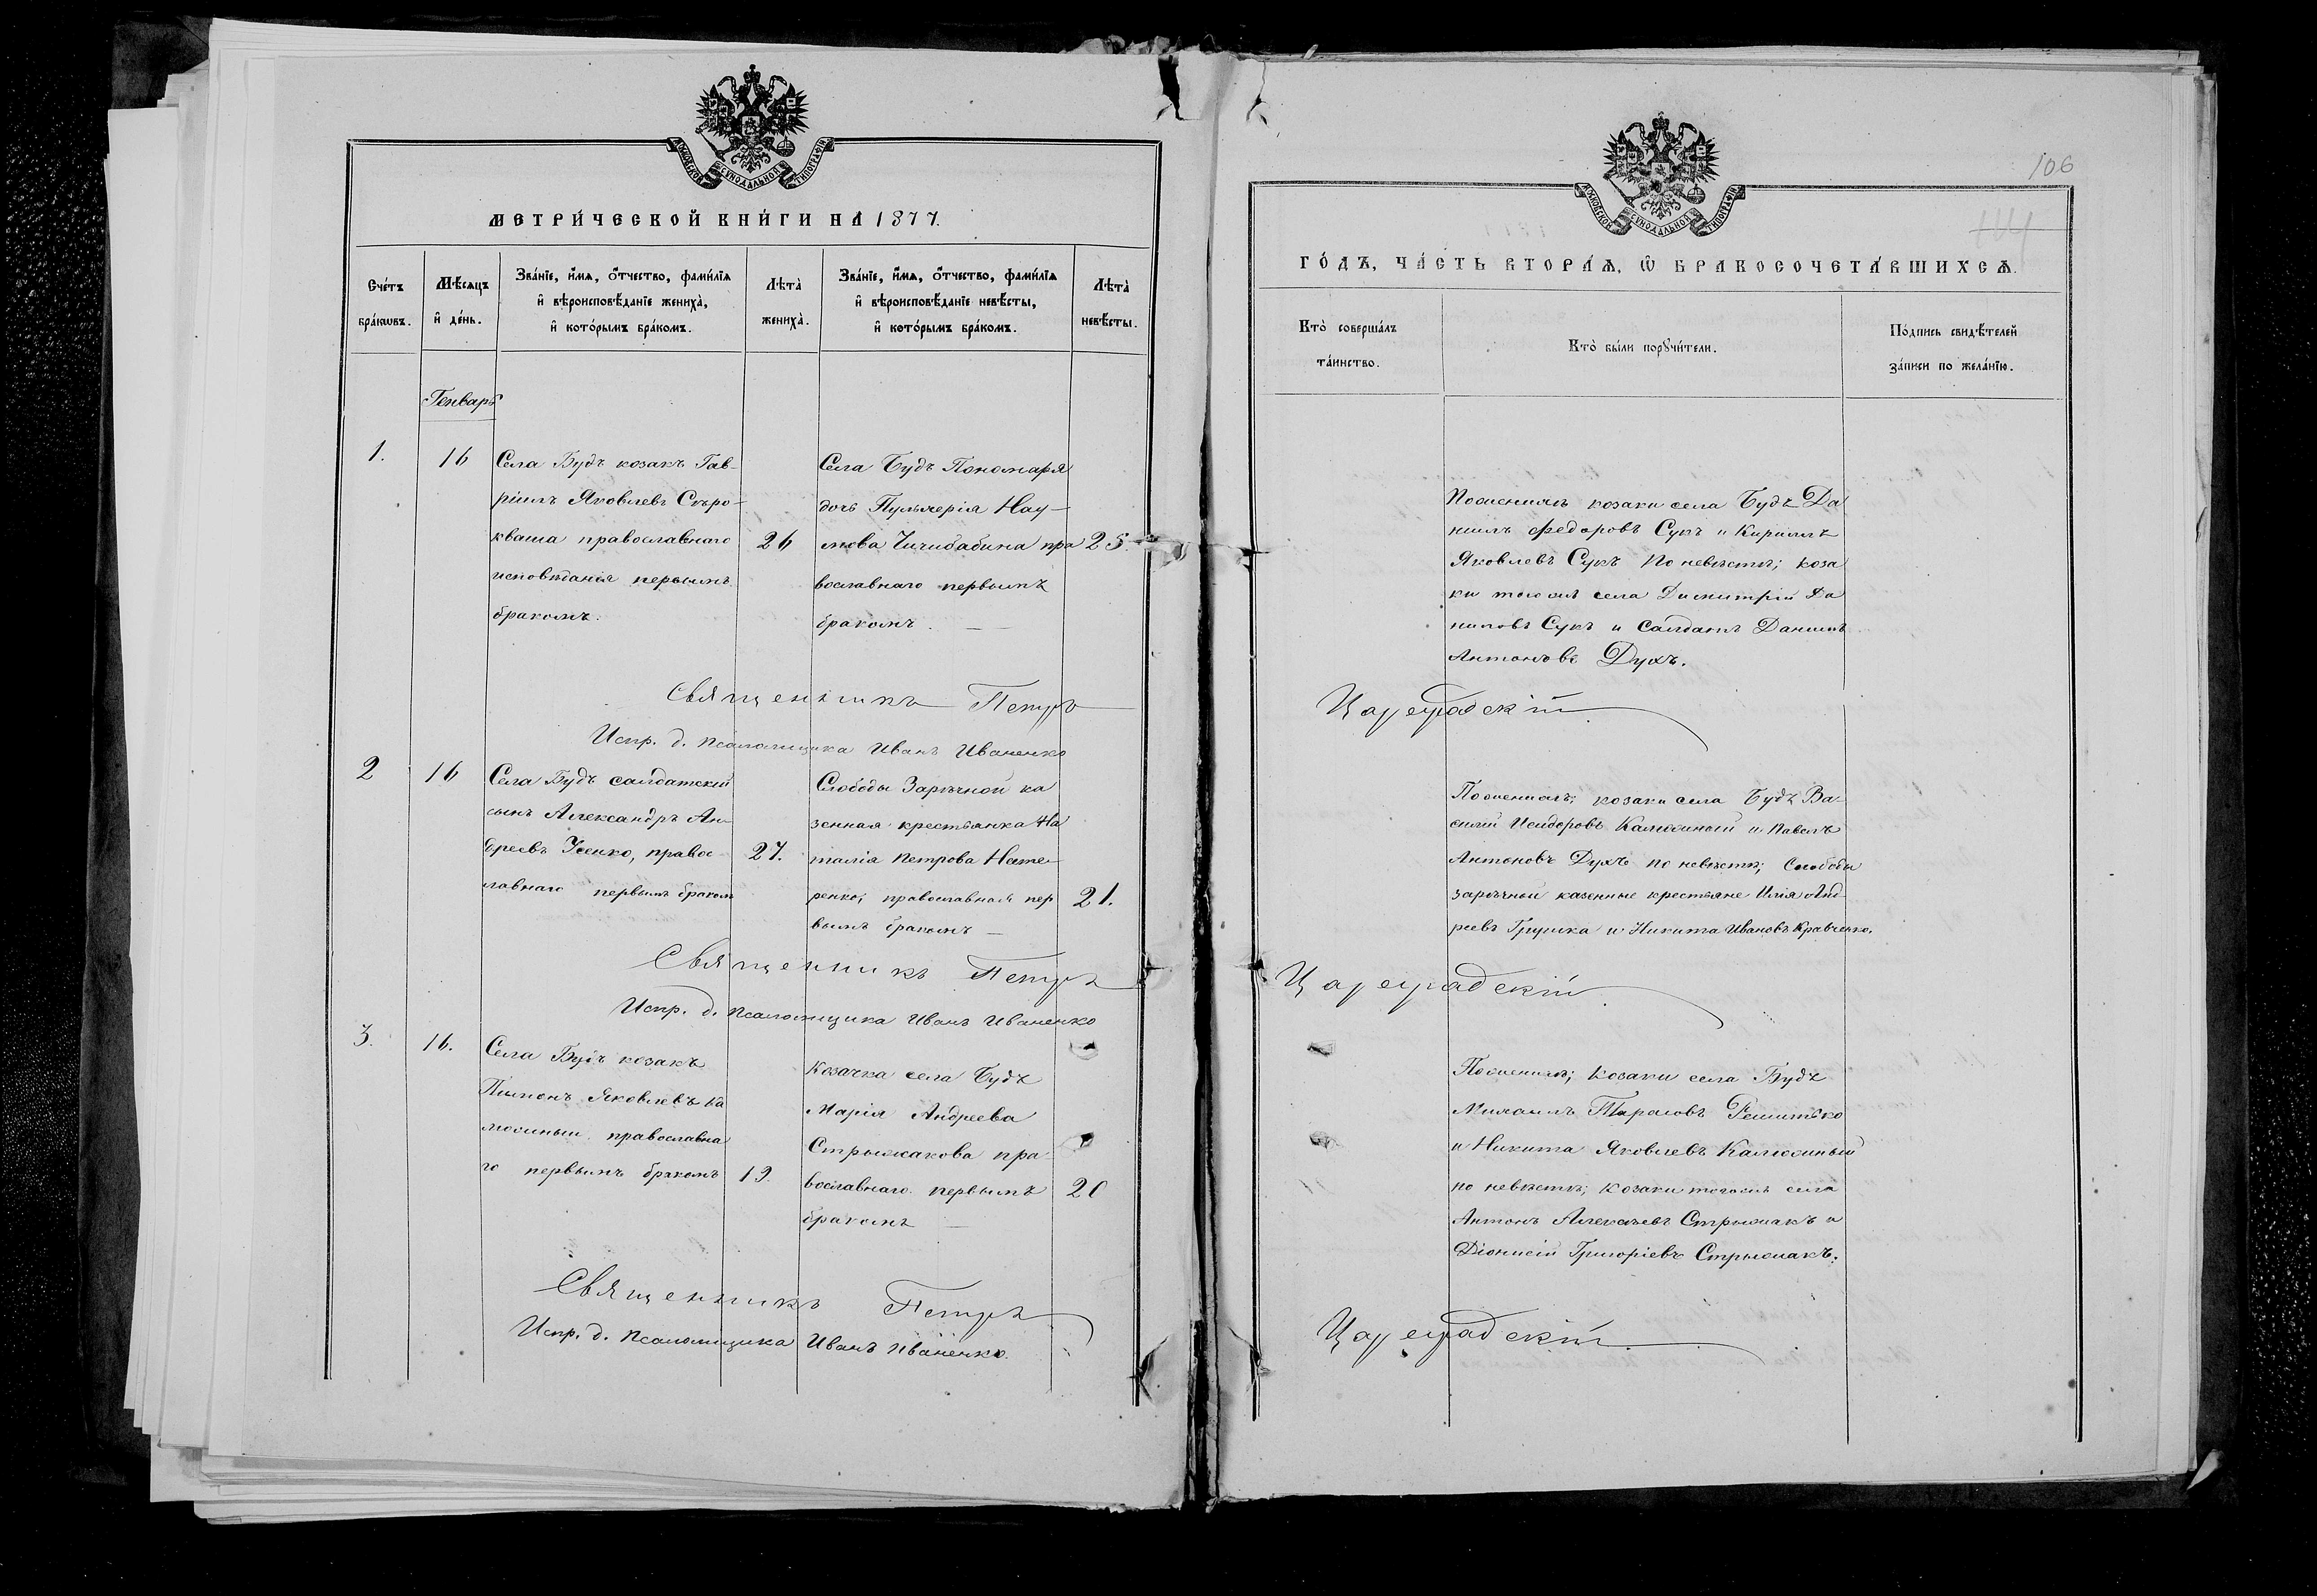 МОСКОВСКОЙ СѴНОДАЛЬНОЙ ТИПОГРАФІИ
МЕТРИ́ЧЕСКОЙ КНИ́ГИ НА 1877.
Сче́тъ бра́ковъ.
Мѣ́сяцъ и҆ де́нь.
Зва́нїе, и҆́мя, ѻ҆́тчество, фами́лїя
и҆ вѣроисповѣ́данїе жениха̀,
и҆ кото́рымъ бра́комъ.
Лѣта̀ жениха̀.
Зва́нїе, и҆́мя, ѻ҆́тчество, фами́лїя
и҆ вѣроисповѣ́данїе невѣ́сты,
и҆ кото́рымъ бра́комъ.
Лѣта̀ невѣ́сты.
Генварь
1.
16
Села Будъ козакъ Гав-
ріилъ Яковлевъ Сыро-
кваша православнаго
исповѣданія первымъ
бракомъ.
26
Села Будъ Пономаря
дочь Пульхерія Нау-
мова Чичибабина пра
вославнаго первымъ
бракомъ. —
25.
Священникъ Петръ
Испр. д. Псаломщика Иванъ Иваненко
2
16
Села Будъ салдатскій
сынъ Александръ Ан-
дреевъ Усенко, право-
славнаго первымъ бракомъ
27.
Слободы Зарѣчной ка
зенная крестьянка На
талія Петрова
ренко, православная пер
вымъ бракомъ —
21.
Священникъ Петръ
Испр. д. Псаломщика Иванъ Иваненко
3.
16.
Села Будъ козакъ
Пименъ Яковлевъ Ка
люжный православна
го первымъ бракомъ
19.
Козачка села Будъ
Марія Андреева
Стрыжакова пра-
вославнаго первымъ
бракомъ —
20
Священникъ Петръ
Испр. д. Псаломщика Иванъ Иваненко.
106
МОСКОВСКОЙ СѴНОДАЛЬНОЙ ТИПОГРАФІИ
ГО́ДЪ, ЧА́СТЬ ВТОРА́Я, Ѡ҆ БРАКОСОЧЕТА́ВШИХСЯ.
Кто̀ соверша́лъ
та́инство.
Кто̀ бы́ли порꙋчи́тели.
По́дпись свидѣ́телей
за́писи по жела́нїю.
По женихѣ козаки села Будъ Да
ніилъ Федоровъ Сукъ и Кириллъ
Яковлевъ Сукъ По невѣстѣ; коза
ки тогожъ села Димитрій Да
ниловъ Сукъ и Салдатъ Даніилъ
Антоновъ Духъ.
Цареградскій
По женихѣ; козаки села Будъ Ва-
силій Исидоровъ Калюжный и Павелъ
Антоновъ Духъ по невѣстѣ; Слободы
зарѣчной казенные крестьяне Илія Анд-
реевъ и Никита Ивановъ Кравченко.
Цареградскій
По женихѣ; Козаки села Будъ
Михаилъ Тарасовъ Решитько
и Никита Яковлевъ Калюжный
по невѣстѣ; козаки тогожъ села
Антонъ Алексѣевъ Стрыжакъ и
Діонисій Григоріевъ Стрыжакъ.
Цареградскій